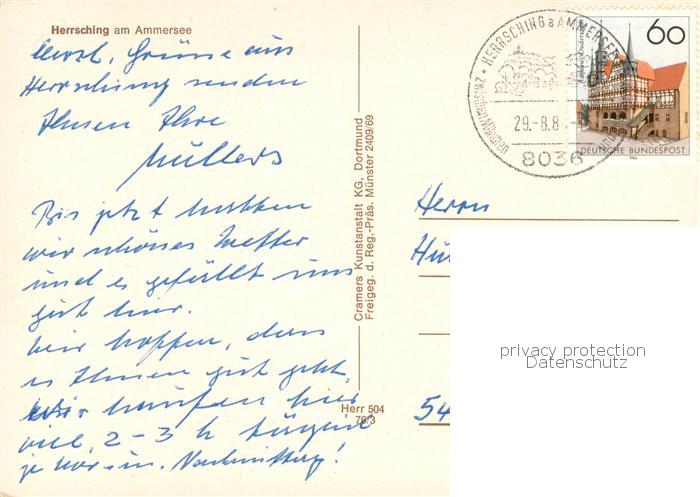 Herrsching am Ammersee
Herzl. Grüsse aus
Herrsching senden
Ihnen Ihre
Müllers
Bis jetzt hatten
wir schönes Wetter
und es gefällt uns
gut hier.
Wir hoffen, dass
es Ihnen gut geht.
Wir laufen hier
viel, 2-3 h täglich
je Vorm. Nachmittag!
Cramers Kunstanstalt KG, Dortmund
Freigeg. d. Reg.-Präs. Münster 2409/69
Herr 504
78/3
HERRSCHING a AMMERSEE
29.-8.8
8036
60
DEUTSCHE BUNDESPOST
1984
Herrn
Hü
54
privacy protection
Datenschutz